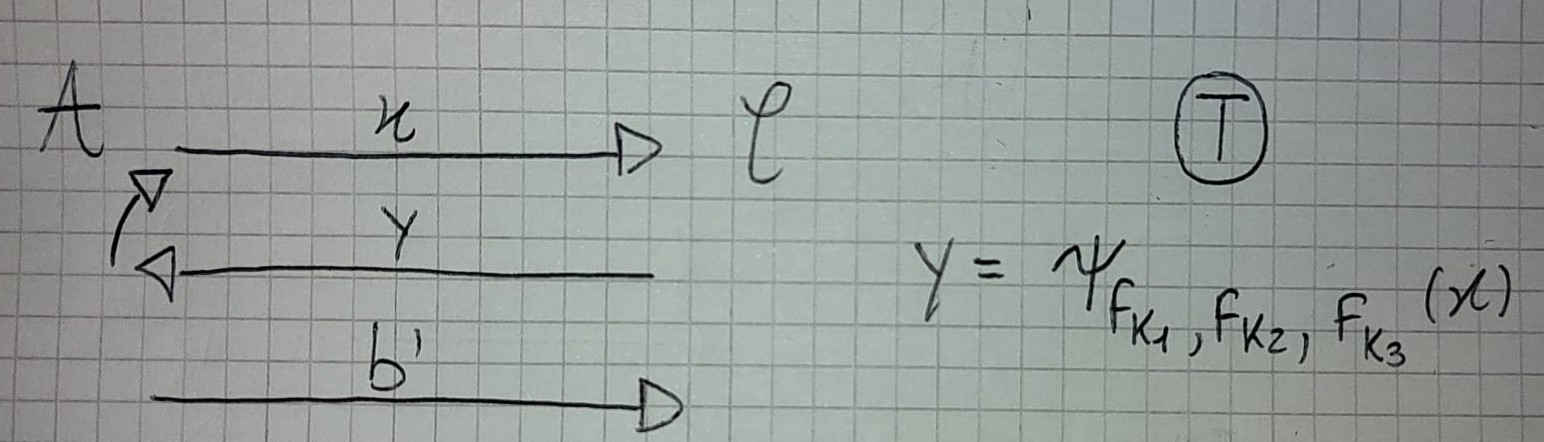 A x C T
y y = ψ_{F_{K1}, F_{K2}, F_{K3}}(x)
b'